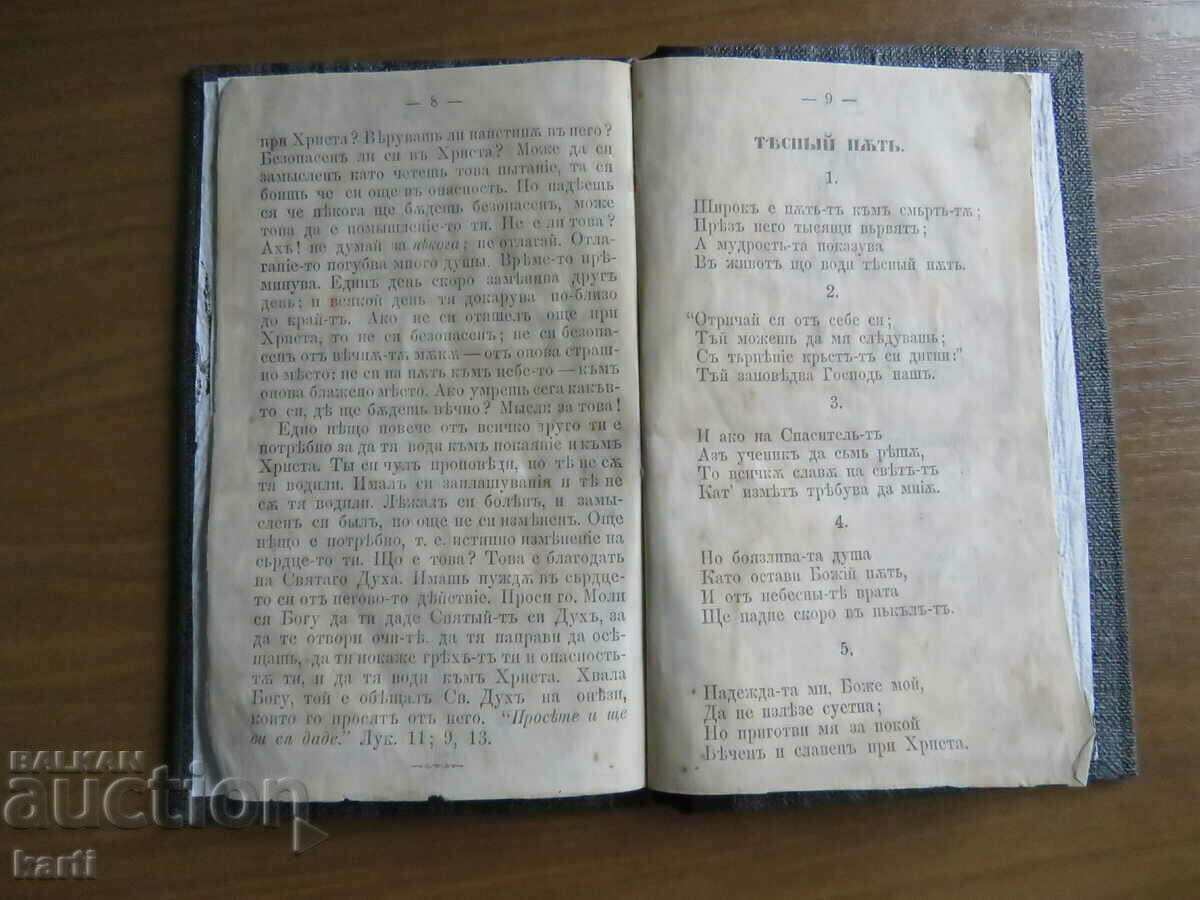 — 8 —
при Христа? Вѣрувашь ли наистинѫ въ него?
Безопасенъ ли си въ Христа? Може да си
замысленъ като четешь това пытаніе, та ся
боишь че си още въ опасность. Но надѣешь
ся че нѣкога ще бѫдешь безопасенъ, може
това да е помышленіе-то ти. Не е ли това?
Ахъ! не думай за нѣкога; не отлагай. Отла-
ганіе-то погубва много душы. Врѣме-то прѣ-
минува. Единъ день скоро замѣнива другъ
день; и всякой день тя докарува по-близо
до край-тъ. Ако не си отишелъ още при
Христа, то не си безопасенъ; не си безопа-
сенъ отъ вѣчнѫ-тѫ мѫкѫ — отъ онова страш-
но мѣсто; не си на пѫть къмъ небе-то — къмъ
онова блажено мѣсто. Ако умрешь сега какъв-
то си, дѣ ще бѫдешь вѣчно? Мысли за това!
Едно нѣщо повече отъ всичко друго ти е
потрѣбно за да тя води къмъ покаяніе и къмъ
Христа. Ты си чулъ проповѣди, но тѣ не сѫ
тя водили. Ималъ си заплашувания и тѣ не
сѫ тя водили. Лѣжалъ си болѣнъ, и замы-
сленъ си былъ, но още не си измѣненъ. Още
нѣщо е потрѣбно, т. е. истинно измѣненіе на
сърдце-то ти. Що е това? Това е благодать
на Святаго Духа. Имашь нуждѫ въ сърдце-
то си отъ негово-то дѣйствіе. Проси го. Моли
ся Богу да ти даде Святый-тъ си Духъ, за
да те отвори очи-тѣ, да тя направи да осѣ-
щашь, да ти покаже грѣхъ-тъ ти и опасность-
тѫ ти, и да тя води къмъ Христа. Хвала
Богу, той е обѣщалъ Св. Духъ на онѣзи,
които го просятъ отъ него. “Просѣте и ще
ви ся даде.” Лук. 11; 9, 13.
— 9 —
ТѢСНЫЙ ПѪТЬ.
1.
Широкъ е пѫть-тъ към смърть-тѫ;
Прѣзъ него тысящи вървятъ;
А мудрость-та показува
Въ животъ що води тѣсный пѫть.
2.
“Отричай ся отъ себе си;
Тъй можешь да мя слѣдувашь;
Съ търпѣніе кръстъ-тъ си дигни:”
Тъй заповѣдва Господь нашъ.
3.
И ако на Спаситель-тъ
Азъ ученикъ да съмь рѣшѫ,
То всичкѫ славѫ на свѣтъ-тъ
Кат’ измѣтъ трѣбува да мнѭ.
4.
Но боязлива-та душа
Като остави Божій пѫть,
И отъ небесны-тѣ врата
Ще падне скоро въ пъкълъ-тъ.
5.
Надежда-та ми, Боже мой,
Да не излѣзе суетна;
Но приготви мя за покой
Вѣченъ и славенъ при Христа.
BALKAN
auction
karti